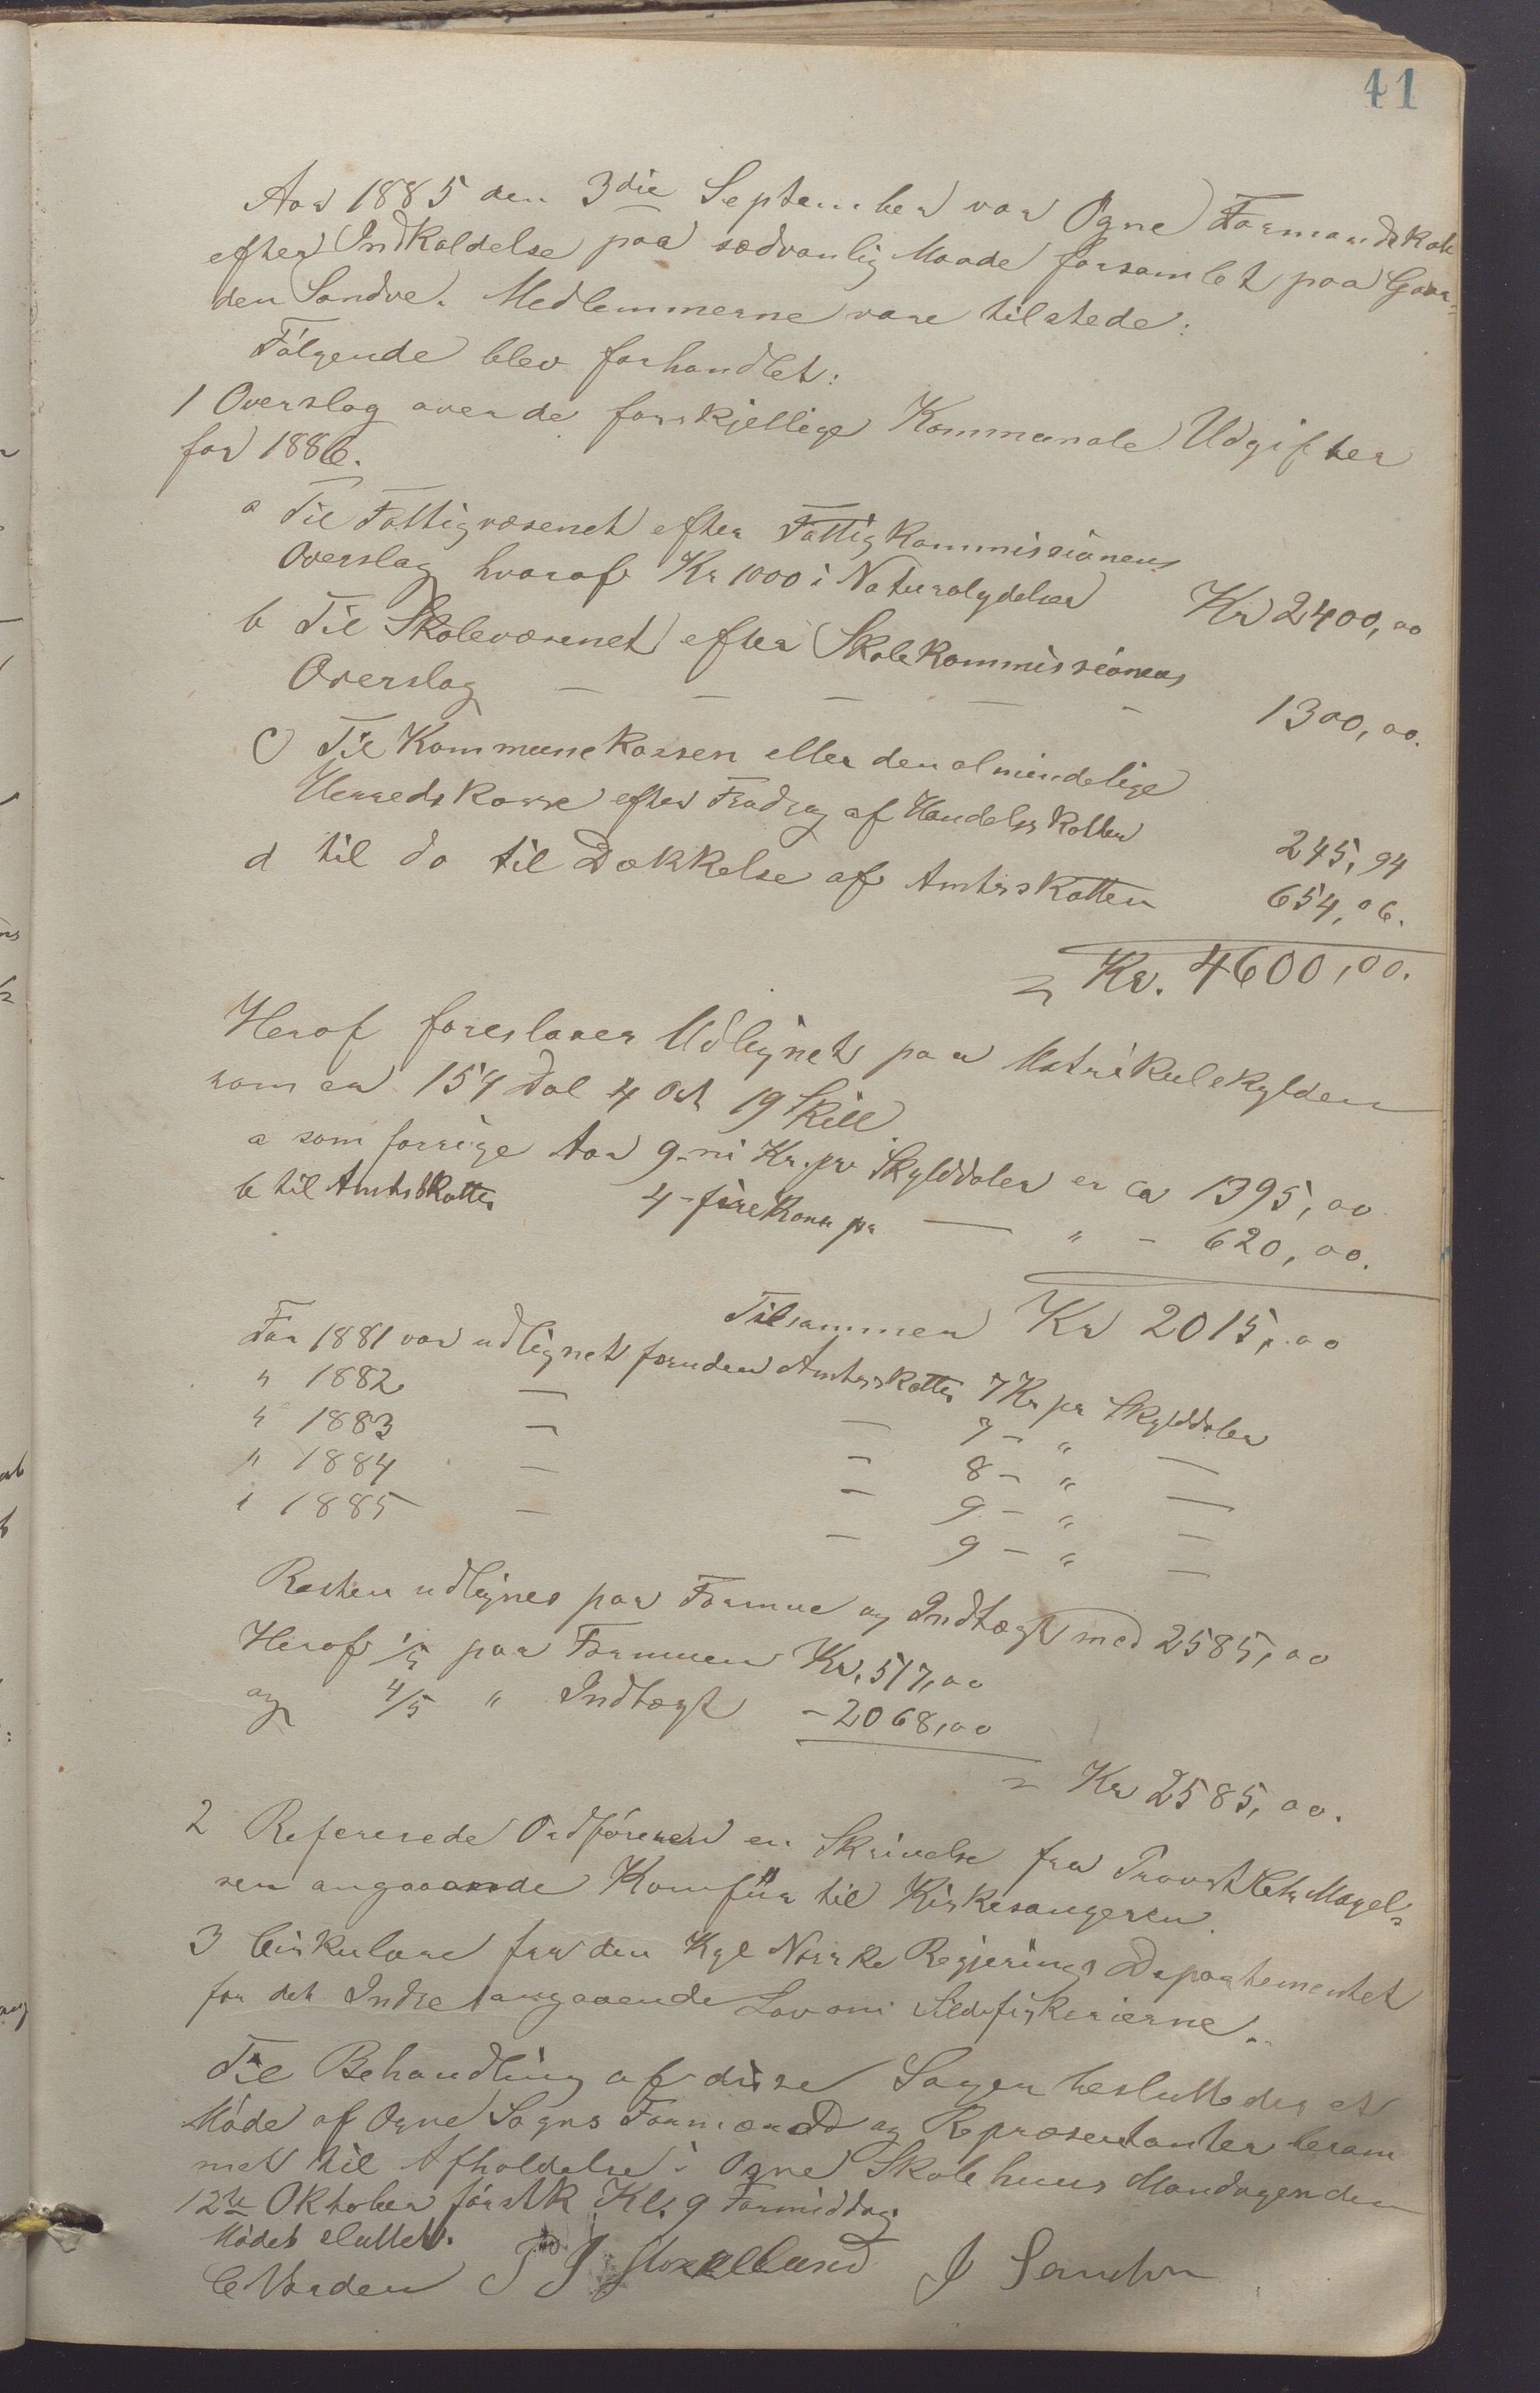 41
Aar 1885 den 3die September var Ogne Formandskab
efter Indkaldelse paa sædvanlig Maade forsamlet paa Gaar-
den Sandve. Medlemmerne vare tilstede:
Følgende blev forhandlet:
1 Overslag over de forskjellige Kommunale Udgifter
for 1886.
a Til Fattigvæsenet efter Fattigkommissionens
Overslag hvoraf Kr 1000 i Naturalydelser Kr 2400,00
b Til Skolevæsenet efter Skolekommissionens
Overslag — — — — — 1300,00.
c Til Kommunekassen eller den almindelige
Herredskasse efter Fradrag af Handelsskatten 245,94
d til do til Dækkelse af Amtsskatten 654,06.
= Kr. 4600,00.
Heraf foreslaaes Udlignet paa Matrikulskylden
som er 154 Dal 4 Ort 19 Skill.
a som forrige Aar 9-ni Kr. pr Skylddaler er ca 1395,00
b til Amtsskatten 4-fire Kroner pr — " - 620,00.
Tilsammen Kr 2015,00
For 1881 var udlignet foruden Amtsskatten 7 Kr pr Skylddaler
" 1882 — — 7 - " —
" 1883 — — 8 - " —
" 1884 — — 9 - " —
" 1885 — — 9 - " —
Resten udlignes paa Formue og Indtægt med 2585,00
Heraf 1/5 paa Formuen Kr. 517,00
og 4/5 " Indtægt - 2068,00
= Kr 2585,00.
2 Refererede Ordføreren en Skrivelse fra Provst Chr Magel-
sen angaaende Komfür til Kirkesangeren.
3 Cirkulære fra den Kgl Norske Regjerings Departementet
for det Indre angaaende Lov om Sildefiskerierne.
Til Behandling af disse Sager besluttedes et
Møde af Ogne Sogns Formænd og Repræsentanter beram
met til Afholdelse i Ogne Skolehuus Mandagen den
12te Oktober førstk. Kl. 9 Formiddag.
Mødet sluttet.
C Varden P J Møllund J Sandve